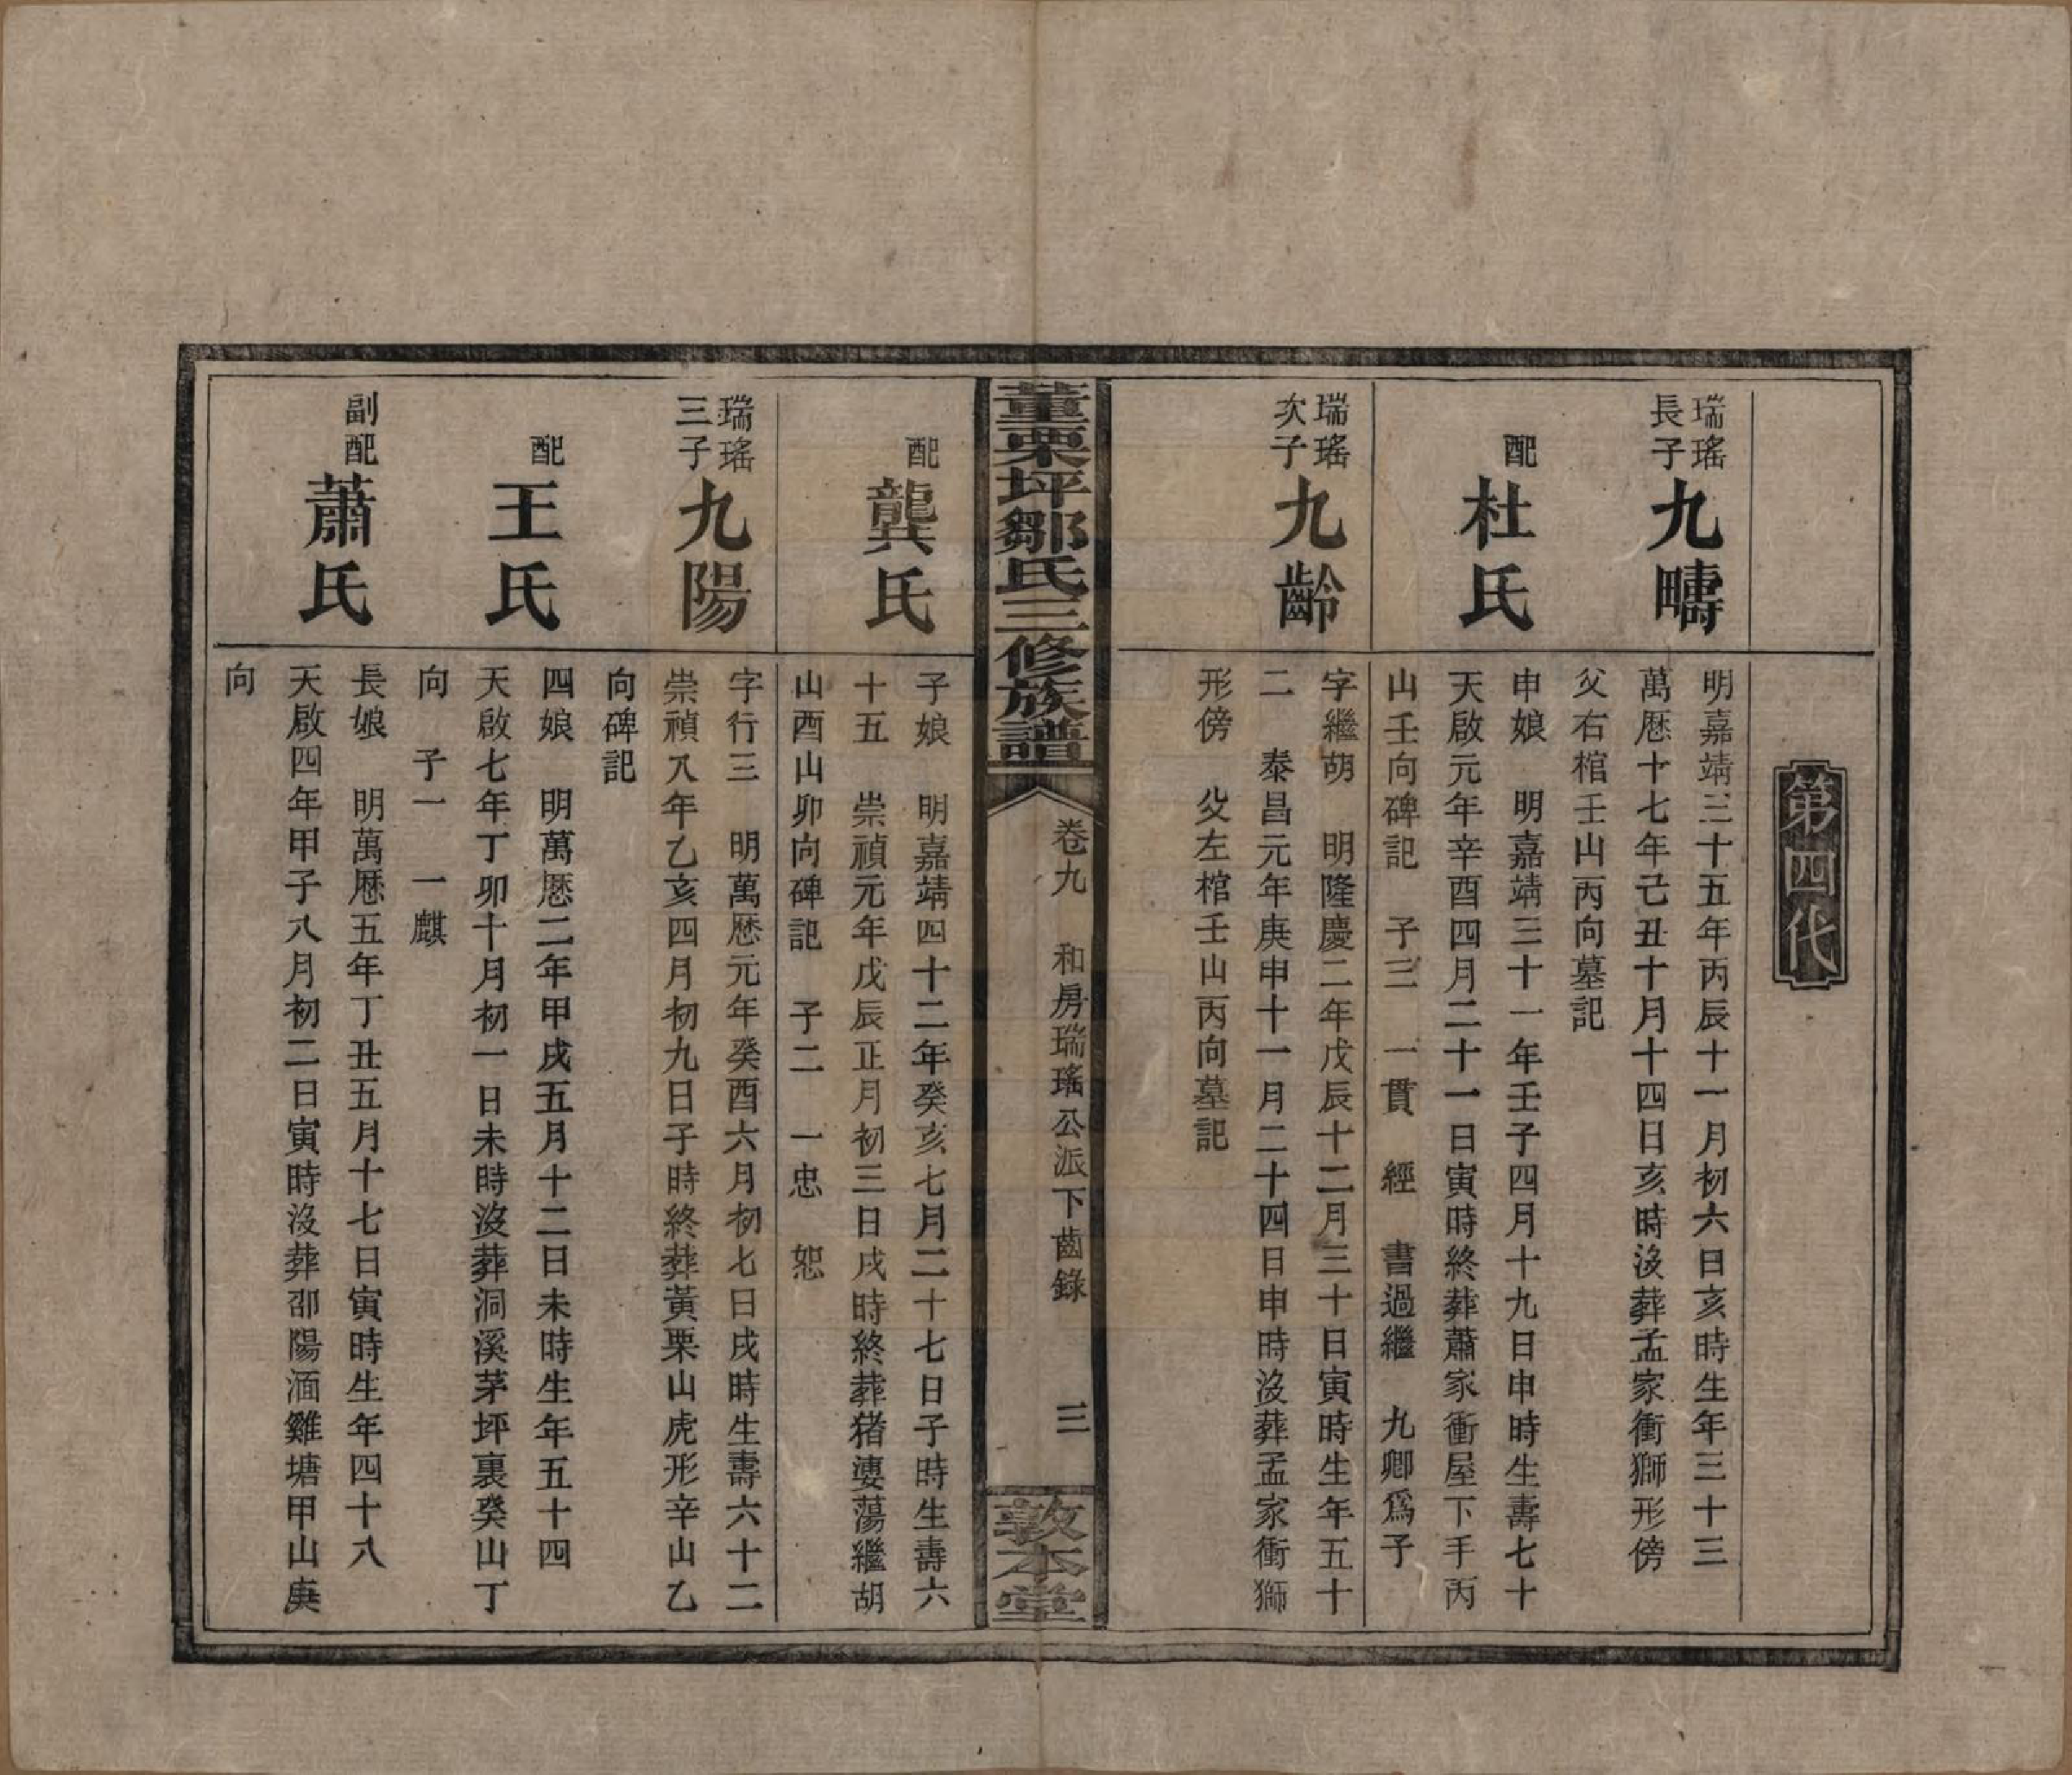 第四代
瑞瑤
長子
九疇
明嘉靖三十五年丙辰十一月初六日亥時生年三十三
萬厯十七年己丑十月十四日亥時沒葬孟家衝獅形傍
父右棺壬山丙向墓記
配
杜氏
申娘 明嘉靖三十一年壬子四月十九日申時生壽七十
天啟元年辛酉四月二十一日寅時終葬蕭家衝屋下手丙
山壬向碑記 子三 一貫 經 書過繼 九卿爲子
瑞瑤
次子
九齡
字繼胡 明隆慶二年戊辰十二月三十日寅時生年五十
二 泰昌元年庚申十一月二十四日申時沒葬孟家衝獅
形傍 父左棺壬山丙向墓記
董栗坪鄒氏三修族譜
卷九 和房瑞瑤公派下齒錄 三
敦本堂
配
龔氏
子娘 明嘉靖四十二年癸亥七月二十七日子時生壽六
十五 崇禎元年戊辰正月初三日戌時終葬猪婆蕩繼胡
山酉山卯向碑記 子二 一忠 恕
瑞瑤
三子
九陽
字行三 明萬厯元年癸酉六月初七日戌時生壽六十二
崇禎八年乙亥四月初九日子時終葬黃栗山虎形辛山乙
向碑記
配
王氏
四娘 明萬厯二年甲戌五月十二日未時生年五十四
天啟七年丁卯十月初一日未時沒葬洞溪茅坪裏癸山丁
向 子一 一麒
副配
蕭氏
長娘 明萬厯五年丁丑五月十七日寅時生年四十八
天啟四年甲子八月初二日寅時沒葬邵陽湎雞塘甲山庚
向